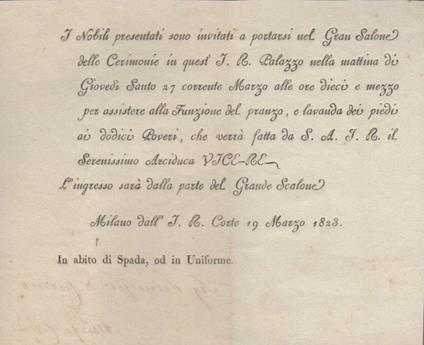 I Nobili presentati sono invitati a portarsi nel Gran Salone
delle Cerimonie in quest' I. R. Palazzo nella mattina di
Giovedì Santo 27 corrente Marzo alle ore dieci e mezzo
per assistere alla Funzione del pranzo, e lavanda dei piedi
ai dodici Poveri, che verrà fatta da S. A. I. R. il
Serenissimo Arciduca VICE-RE
L'ingresso sarà dalla parte del Grande Scalone
Milano dall' I. R. Corte 19 Marzo 1823.
In abito di Spada, od in Uniforme.